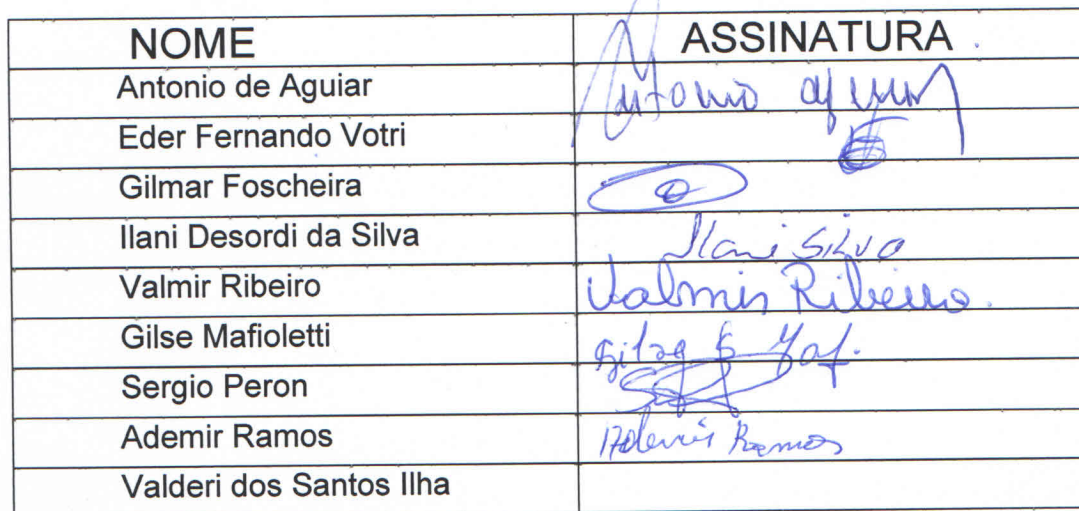 NOME ASSINATURA
Antonio de Aguiar Antonio Aguiar
Eder Fernando Votri
Gilmar Foscheira
Ilani Desordi da Silva Ilani Silva
Valmir Ribeiro Valmir Ribeiro.
Gilse Mafioletti
Sergio Peron
Ademir Ramos Ademir Ramos
Valderi dos Santos Ilha